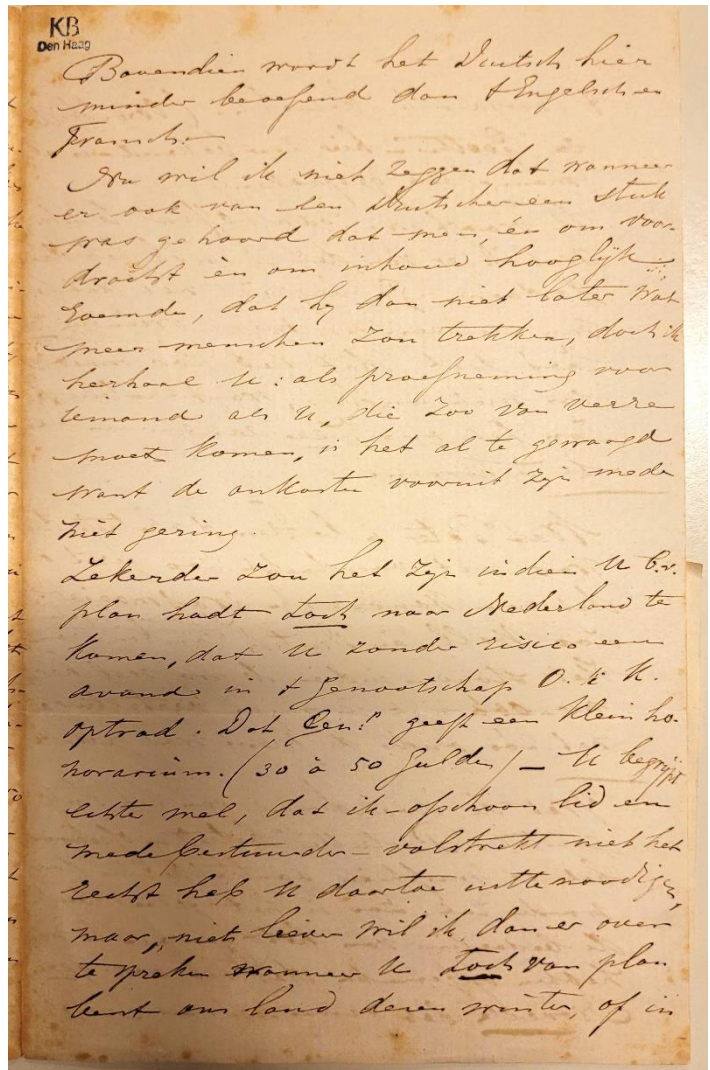 KB
Den Haag
Bovendien wordt het Duitsch hier
minder beoefend dan 't Engelsch en
Fransch.
Nu wil ik niet zeggen dat wanneer
er ook van een Duitscher een stuk
was gehoord dat men, én om voor-
dracht én om inhoud hooglijk
roemde, dat hij dan niet later wat
meer menschen zou trekken, doch ik
herhaal U: als proefneming voor
iemand als U, die zoo van verre
moet komen, is het al te gewaagd
want de onkosten vooruit zijn mede
niet gering.
Zekerder zou het zijn indien U b.v.
plan hadt toch naar Nederland te
komen, dat U zonder risico een
avond in 't genootschap O. K.
optrad. Dat Gen. geeft een klein ho-
norarium. (30 à 50 gulden) – U begrijpt
echter wel, dat ik – ofschoon lid en
medebestuurder – volstrekt niet het
recht heb U daartoe uittenoodigen,
maar, niet liever wil ik, dan er over
te spreken wanneer U toch van plan
bent ons land dezen winter, of in